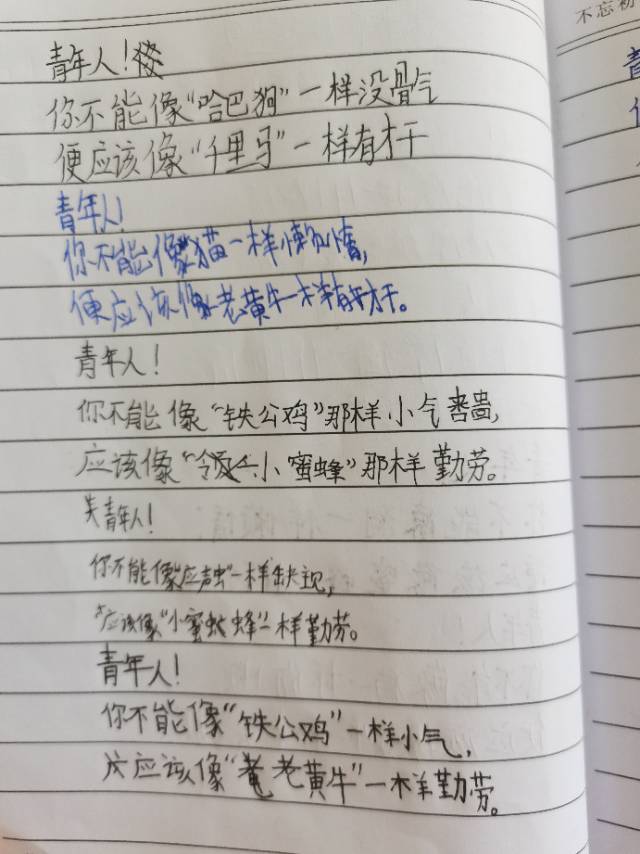 不忘初
青年人！
你不能像“哈巴狗”一样没骨气
便应该像“千里马”一样有才干
青年人！
你不能像猫一样懒惰，
便应该像老黄牛一样能干。
青年人！
你不能像“铁公鸡”那样小气啬，
应该像“小蜜蜂”那样勤劳。
青年人！
你不能像应声虫一样缺主见，
应该像“小蜜蜂”一样勤劳。
青年人！
你不能像“铁公鸡”一样小气，
应该像“老黄牛”一样勤劳。